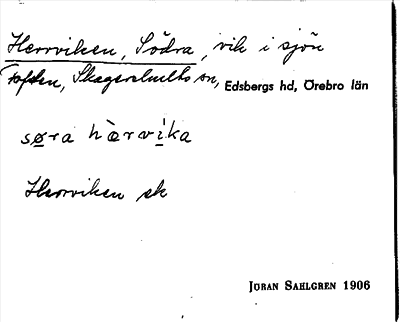 Herrviken, Södra, vik i sjön
Toften, Skagershults sn, Edsbergs hd, Örebro län
søra hærvika
Herrviken ek
JÖRAN SAHLGREN 1906